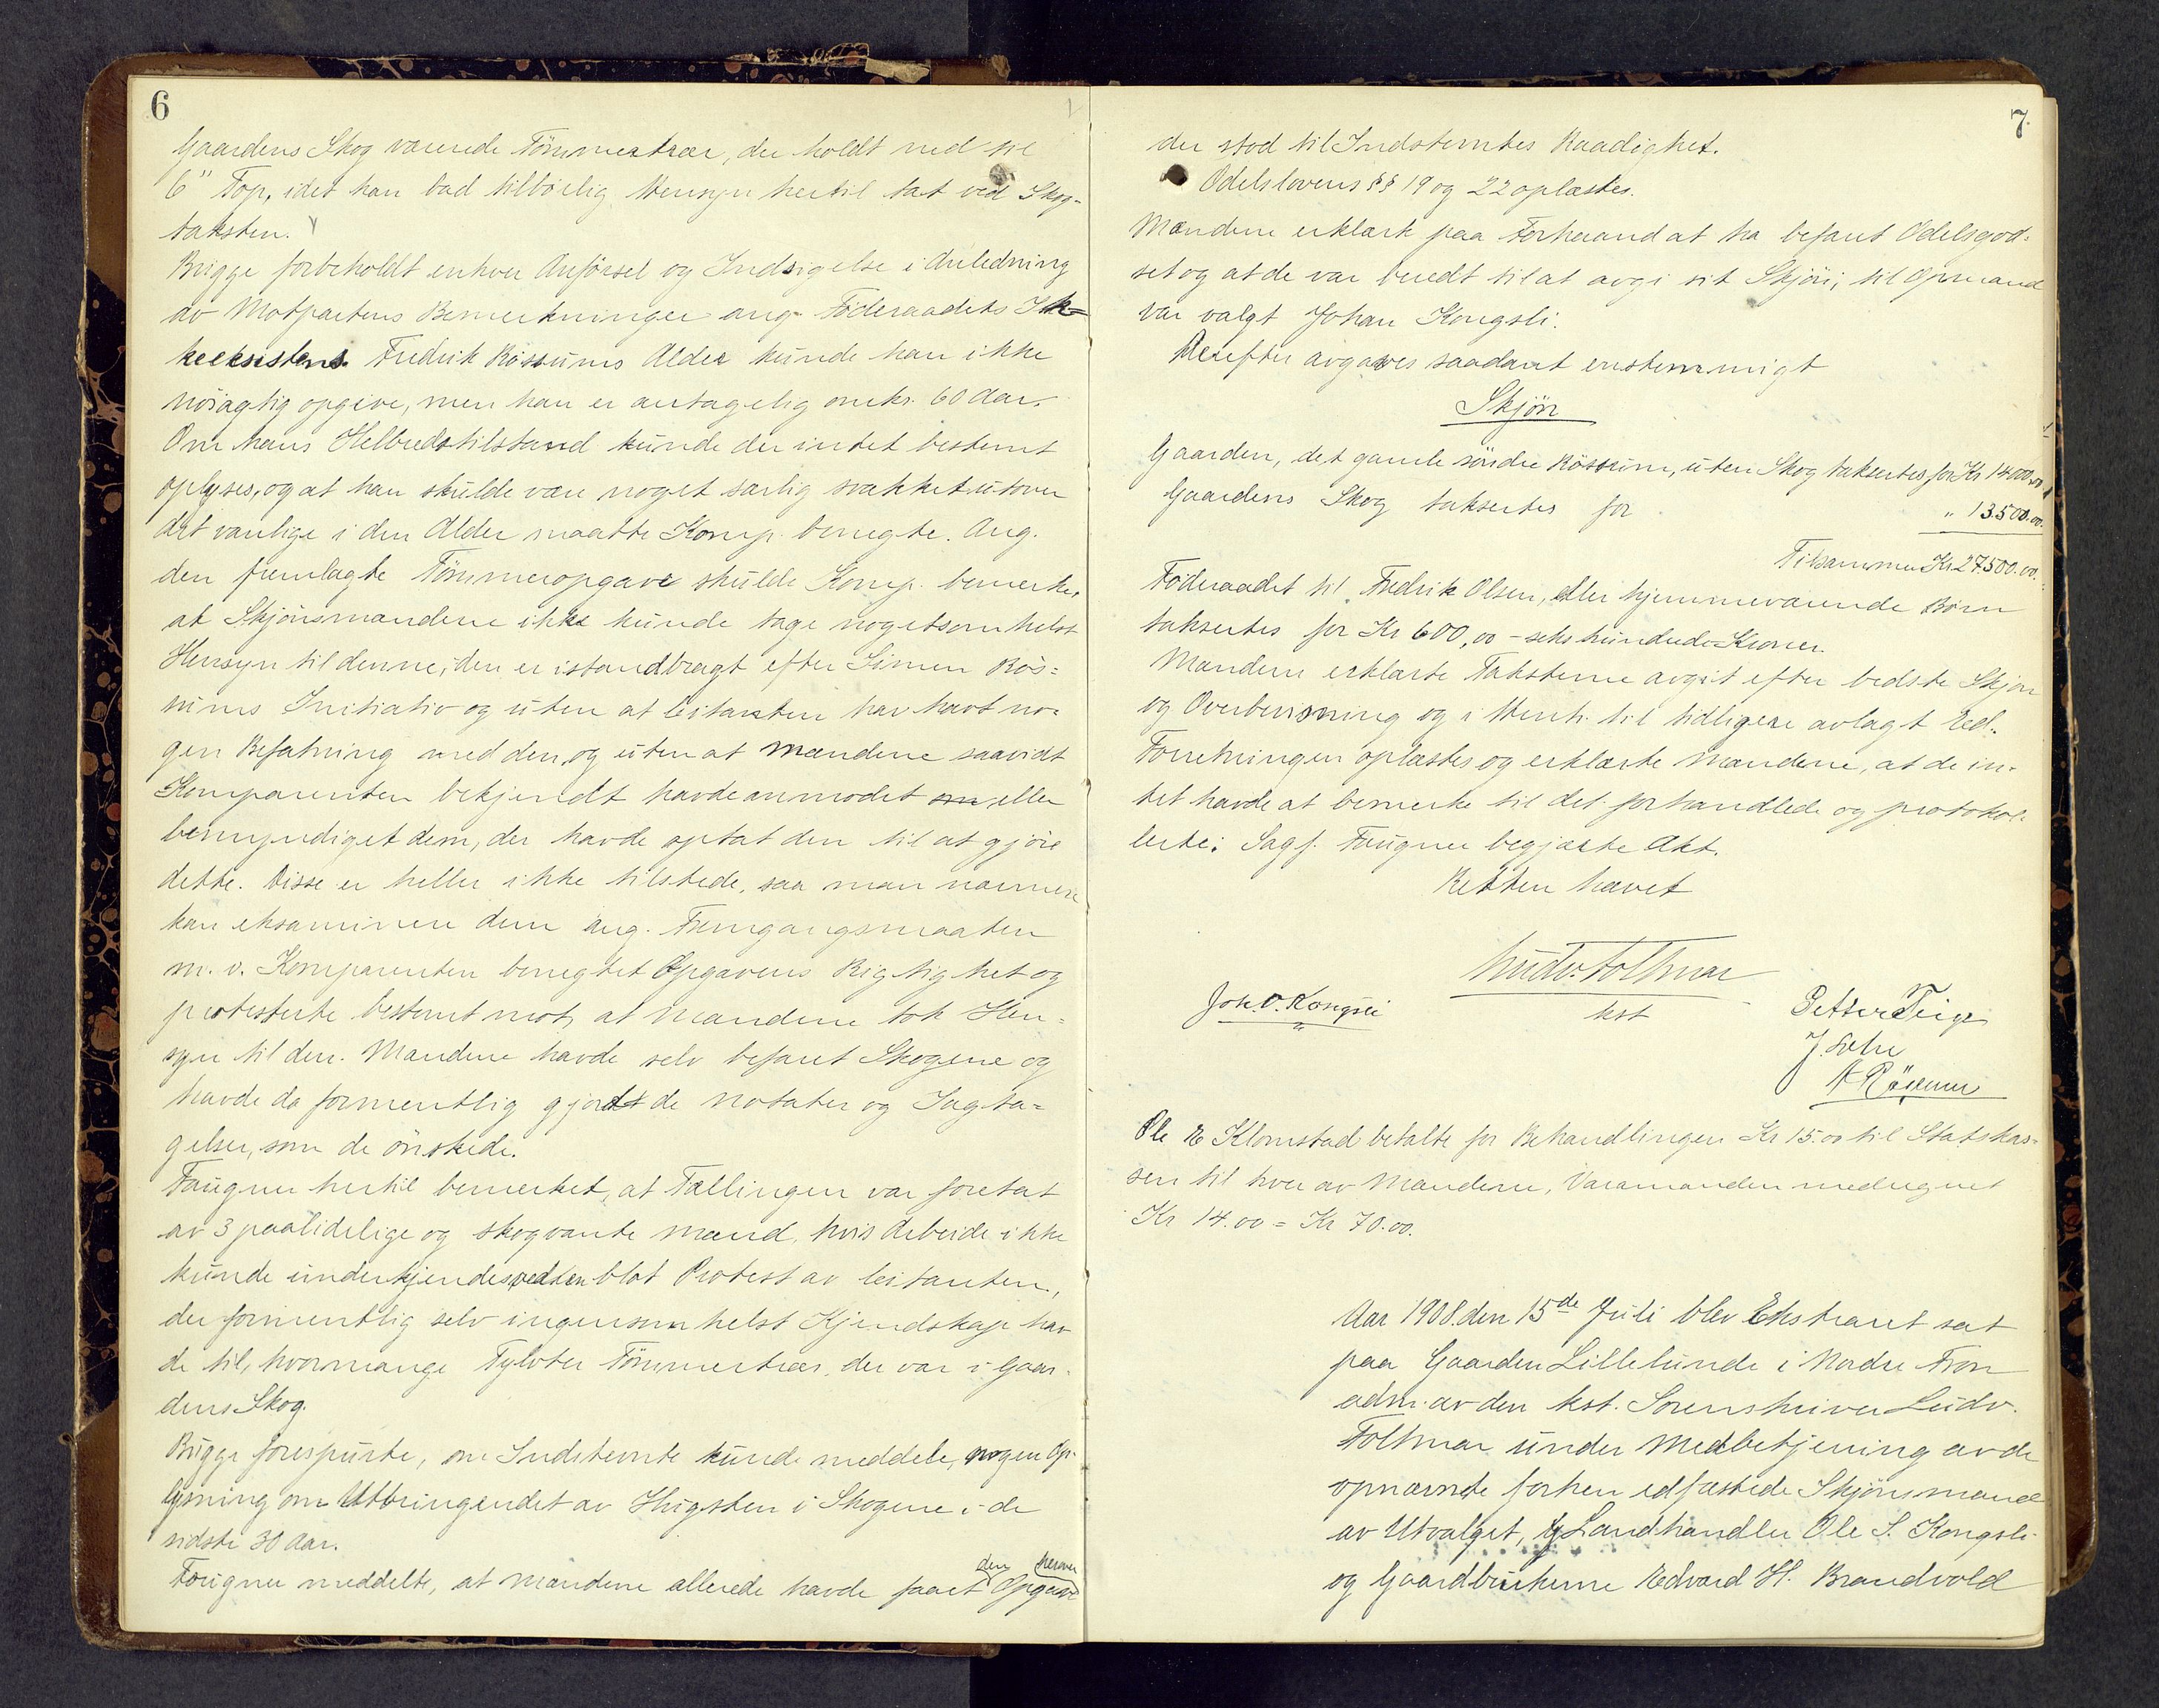 6
Gaardens Skog værende Tømmertrær, der holdt ned til
6" Top, idet han bad tilbørlig Hensyn hertil tat ved Skog-
taksten.
Brügge forbeholdt enhver Anførsel og Indsigelse i Anledning
av Motpartens Bemerkninger ang. Føderaadets Ik-
keeksistens. Fredrik Røssums Alder kunde han ikke
nøiagtig opgive, men han er antagelig omkr. 60 Aar.
Om hans Helbredstilstand kunde der intet bestemt
oplyses, og at han skulde være noget særlig svækket utover
det vanlige i den Alder maatte Komp. benegte. Ang.
den fremlagte Tømmeropgave skulde Komp. bemerke,
at Skjønsmændene ikke kunde tage nogetsomhelst
Hensyn til denne; den er istandbragt efter Simen Røs-
sums Initiativ og uten at Citanten har havt no-
gen Befatning med den, og uten at Mændene saavidt
Komparenten bekjendt havde anmodet om, eller
bemyndiget dem, der havde optat den til at gjøre
dette. Disse er heller ikke tilstede, saa man nærmere
kan eksaminere dem ang. Fremgangsmaaten
m. v. Komparenten benegtet Opgavens Rigtighet og
protesterte bestemt mot, at Mændene tok Hen-
syn til den. Mændene havde selv befaret Skogene og
havde da formentlig gjordt de Notater og Iagtta-
gelser, som de ønskede.
Fougner hertil bemerket, at Tællingen var foretat
av 3 paalidelige og skogvante Mænd, hvis Arbeide ikke
kunde underkjendes ved en blot Protest av Citanten,
der formentlig selv ingensomhelst Kjendskap hav-
de til, hvormange Tylvter Tømmertrær, der var i Gaar-
dens Skog.
Brügge forespurte, om Indstevnte kunde meddele nogen Op-
lysning om Utbringendet av Hugsten i Skogene i de
sidste 30 Aar.
den herover
Fougner meddelte, at Mændene allerede havde faaet Opgave
7.
der stod til Indstevntes Raadighet.
Odelslovens §§ 19 og 22 oplæstes.
Mændene erklært paa Forhaand at ha befaret Odelsgod-
set og at de var beredt til at avgi sit Skjøn; til Opmand
var valgt Johan Kongsli.
Derefter avgaves saadant enstemmigt
Skjøn
Gaarden, det gamle søndre Røssum, uten Skog taksertes for Kr 14000.00
Gaardens Skog taksertes for " 13.500.00.
Tilsammen Kr. 27.500.00.
Føderaadet til Fredrik Olsen, eller hjemmeværende Børn
taksertes for Kr 600,00 - seks hundrede Kroner.
Mændene erklærte Taksterne avgit efter bedste Skjøn
og Overbevisning og i Henh. til tidligere avlagt Ed.
Forretningen oplæstes og erklærte Mændene, at de in-
tet havde at bemerke til det forhandlede og protokol-
lerte; Sagf. Fougner begjærte Akt.
Retten hævet
Ludv. Foltmar
kst
Joh. O. Kongsli
Petter Teige
J. Lohre
A Røssum
Ole E Klomstad betalte for Behandlingen Kr 15.00 til Statskas-
sen til hver av Mændene, Varamanden medregnet
Kr 14.00 = Kr 70.00.
Aar 1908. den 15de Juli blev Ekstraret sat
paa Gaarden Lillelunde i Nordre Fron
adm. av den kst. Sorenskriver Ludv.
Foltmar under Medbetjening av de
opnævnte forhen edfæstede Skjønsmænd
av Utvalget, Landhandler Ole S. Kongsli
og Gaardbrukerne Edvard H. Brandvold